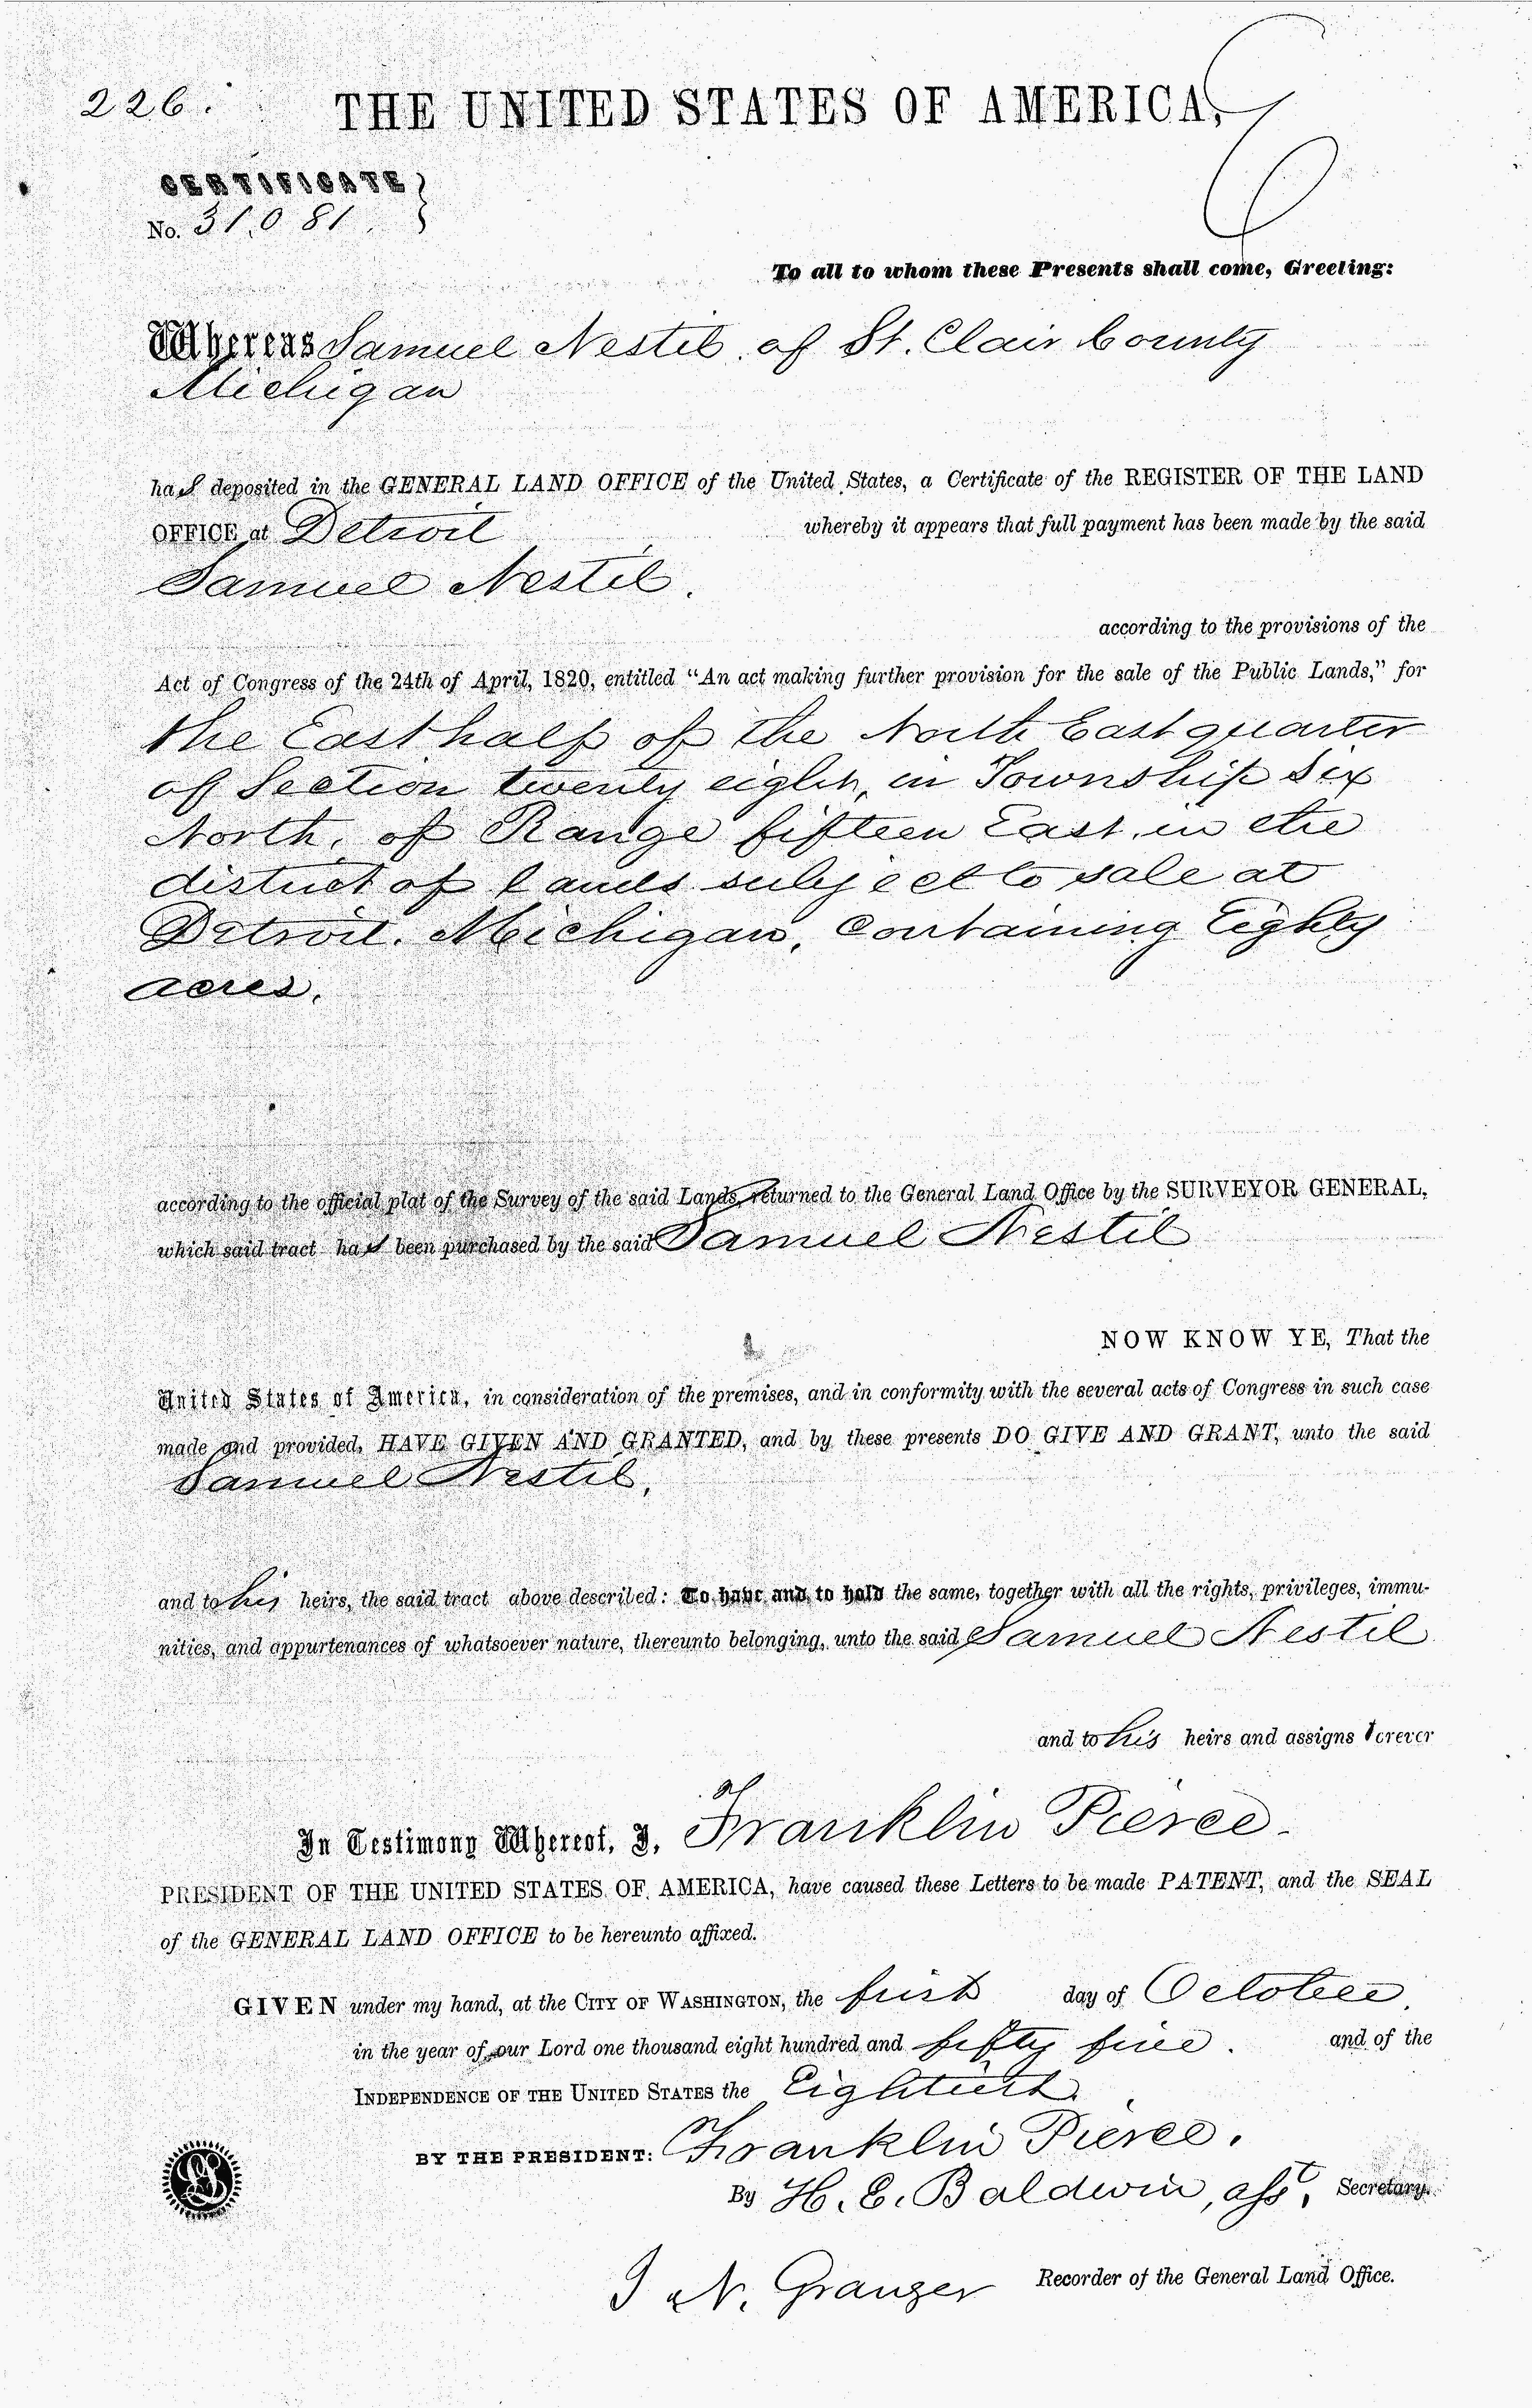 226.
THE UNITED STATES OF AMERICA,
CERTIFICATE
No. 31,081
To all to whom these Presents shall come, Greeting:
Whereas Samuel Nestil of St. Clair County
Michigan
has deposited in the GENERAL LAND OFFICE of the United States, a Certificate of the REGISTER OF THE LAND
OFFICE at Detroit whereby it appears that full payment has been made by the said
Samuel Nestil.
according to the provisions of the
Act of Congress of the 24th of April, 1820, entitled “An act making further provision for the sale of the Public Lands,” for
the East half of the North East quarter
of Section twenty eight, in Township Six
North, of Range fifteen East, in the
district of lands subject to sale at
Detroit. Michigan, Containing Eighty
acres.
according to the official plat of the Survey of the said Lands, returned to the General Land Office by the SURVEYOR GENERAL,
which said tract has been purchased by the said Samuel Nestil
NOW KNOW YE, That the
United States of America, in consideration of the premises, and in conformity with the several acts of Congress in such case
made and provided, HAVE GIVEN AND GRANTED, and by these presents DO GIVE AND GRANT, unto the said
Samuel Nestil,
and to his heirs, the said tract above described: To have and to hold the same, together with all the rights, privileges, immu-
nities, and appurtenances of whatsoever nature, thereunto belonging, unto the said Samuel Nestil
and to his heirs and assigns forever
In Testimony Whereof, I, Franklin Pierce.
PRESIDENT OF THE UNITED STATES OF AMERICA, have caused these Letters to be made PATENT, and the SEAL
of the GENERAL LAND OFFICE to be hereunto affixed.
GIVEN under my hand, at the CITY OF WASHINGTON, the first day of October,
in the year of our Lord one thousand eight hundred and fifty five. and of the
INDEPENDENCE OF THE UNITED STATES the Eightieth
BY THE PRESIDENT: Franklin Pierce.
By H. E. Baldwin, asst. Secretary.
J N. Granger Recorder of the General Land Office.